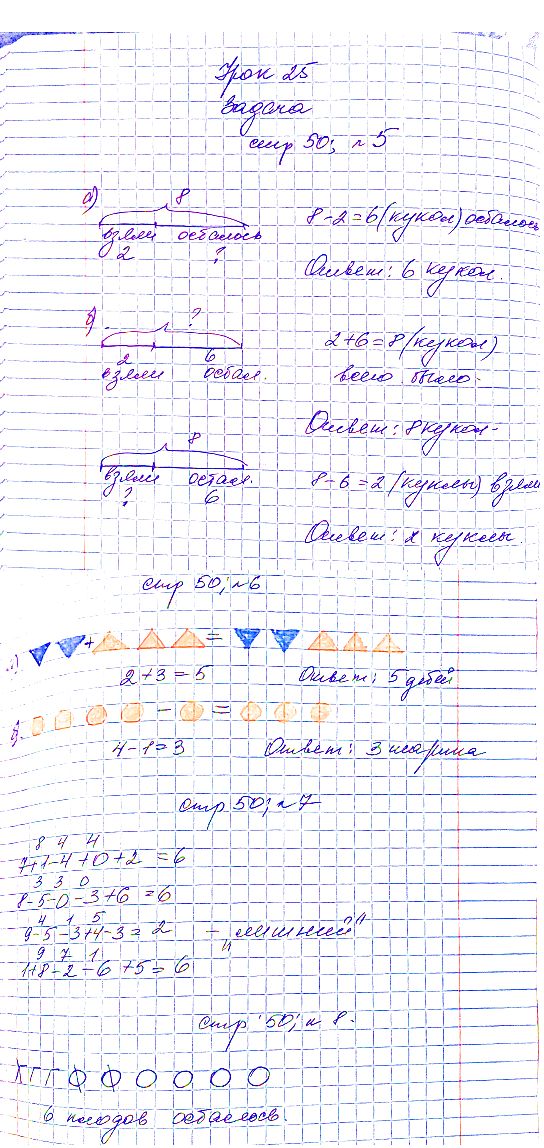 Урок 25
Задача
стр 50; №5
а) 8
взяли осталось
2 ?
8-2=6(кукол) осталось
Ответ: 6 кукол.
б) ?
2 6
взяли остал.
2+6=8(кукол)
всего было.
Ответ: 8 кукол.
8
взяли остал.
? 6
8-6=2 (куклы) взяли
Ответ: 2 куклы.
стр 50; №6
+ =
2+3=5 Ответ: 5 детей
б) - =
4-1=3 Ответ: 3 шарика
стр 50; №7
8 4 4
7+1-4+0+2=6
3 3 0
8-5-0-3+6=6
4 1 5
9-5-3+4-3=2 - "лишний"
9 7 1
1+8-2-6+5=6
стр 50; №8.
6 плодов осталось.